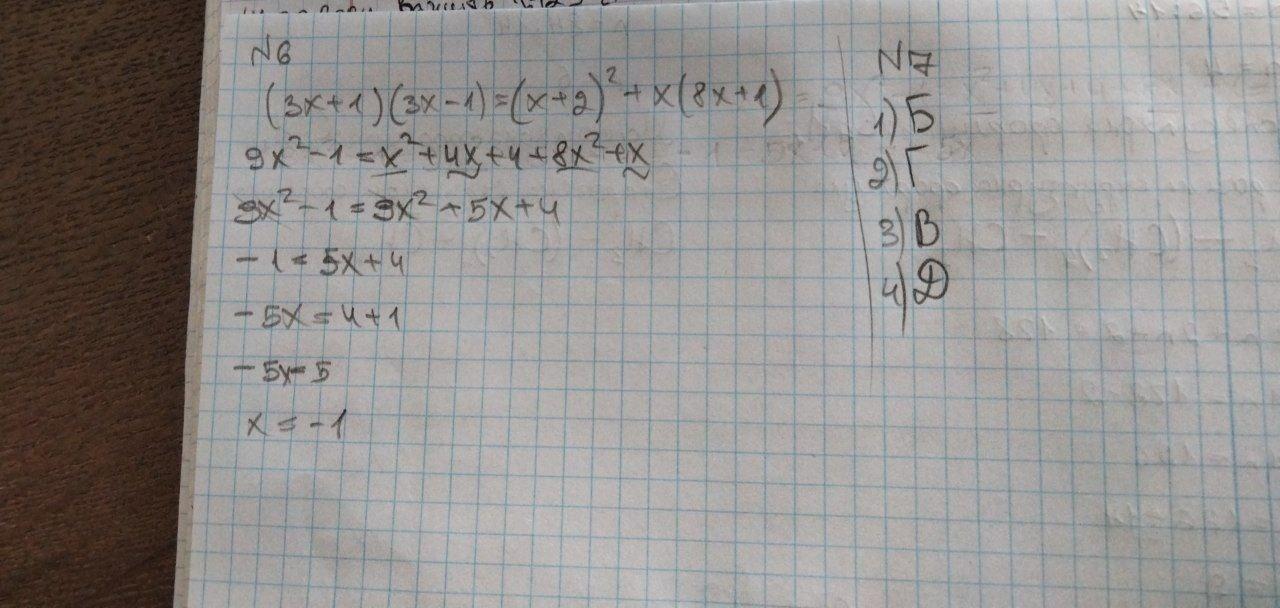 N6
(3x+1)(3x-1)=(x+2)²+x(8x+1)
9x²-1=x²+4x+4+8x²+x
9x²-1=9x²+5x+4
-1=5x+4
-5x=4+1
-5x=5
x=-1
N7
1) Б
2) Г
3) В
4) Д